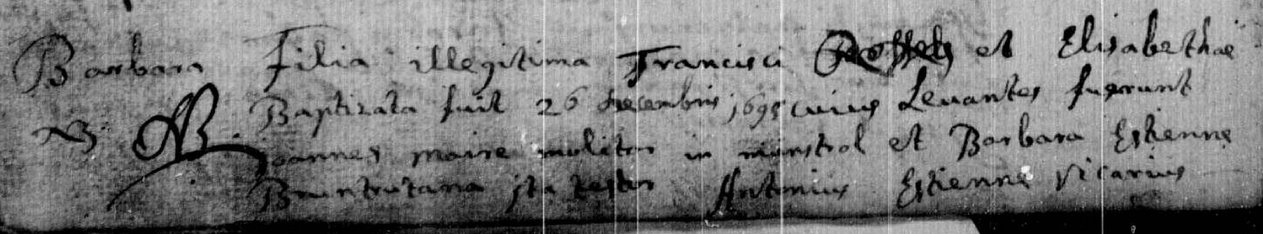 Barbara Filia illegitima Francisci et Elisabethae
Baptizata fuit 26 decembris 1695 cuius Levantes fuerunt
N. Joannes maire molitor in munstrol et Barbara Estienne
Bruntrutana ita testor Antonius Estienne vicarius